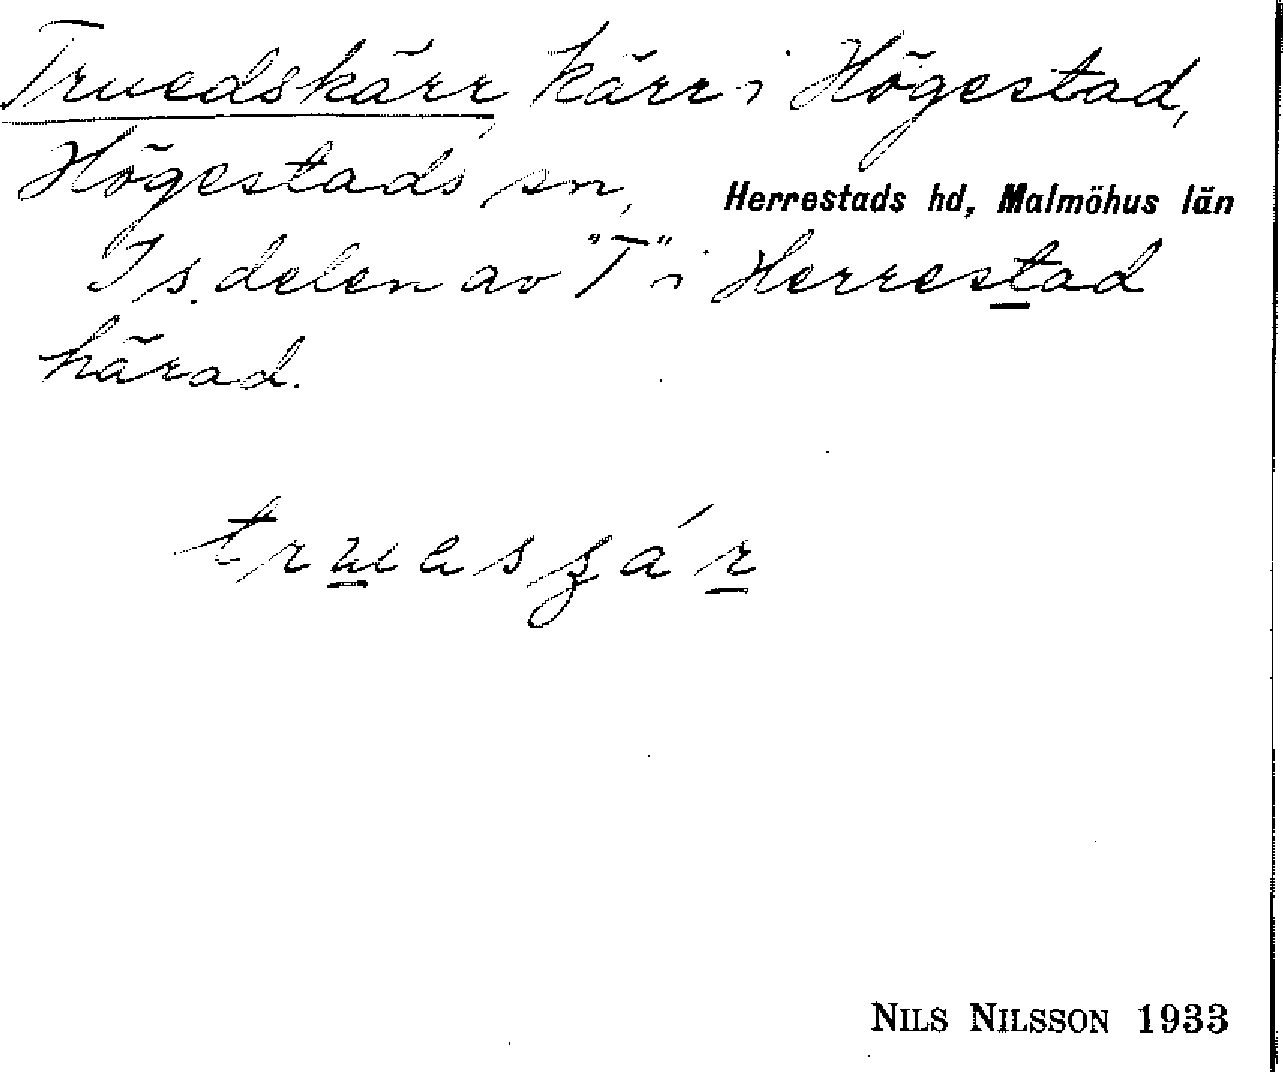 Truedskärr, kärr i Högestad,
Högestads sn, Herrestads hd, Malmöhus län
I s. delen av "T" i Herrestad
härad.
NILS NILSSON 1933